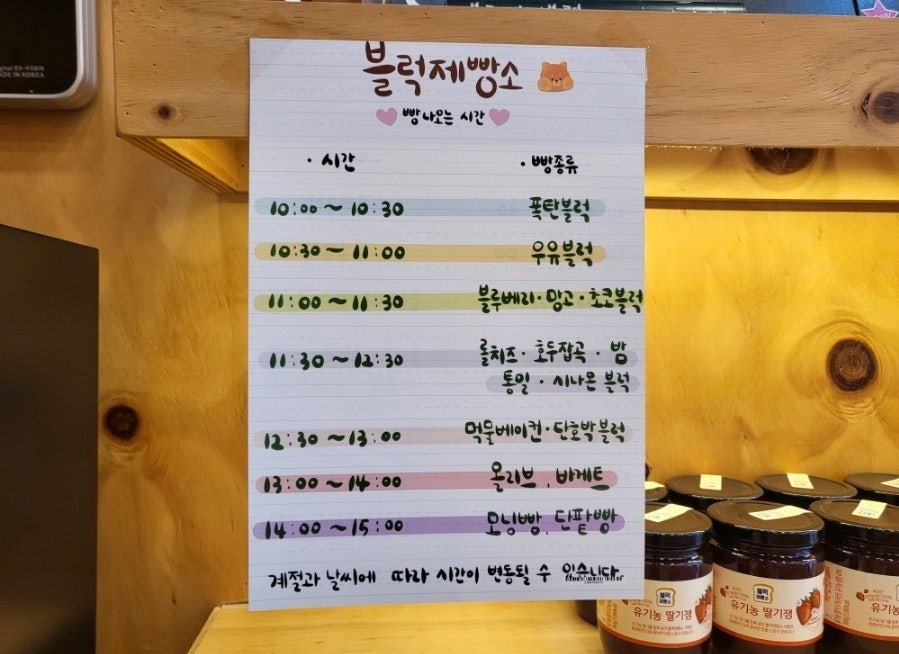 블럭제빵소
빵 나오는 시간
· 시간 · 빵종류
10:00 ~ 10:30 폭탄블럭
10:30 ~ 11:00 우유블럭
11:00 ~ 11:30 블루베리·망고·초코블럭
11:30 ~ 12:30 롤치즈·호두잡곡·밤
통밀·시나몬 블럭
12:30 ~ 13:00 먹물베이컨·단호박블럭
13:00 ~ 14:00 올리브, 바게트
14:00 ~ 15:00 모닝빵, 단팥빵
계절과 날씨에 따라 시간이 변동될 수 있습니다
MADE IN KOREA
블럭
제빵소
유기농 딸기잼
유기농 딸기잼